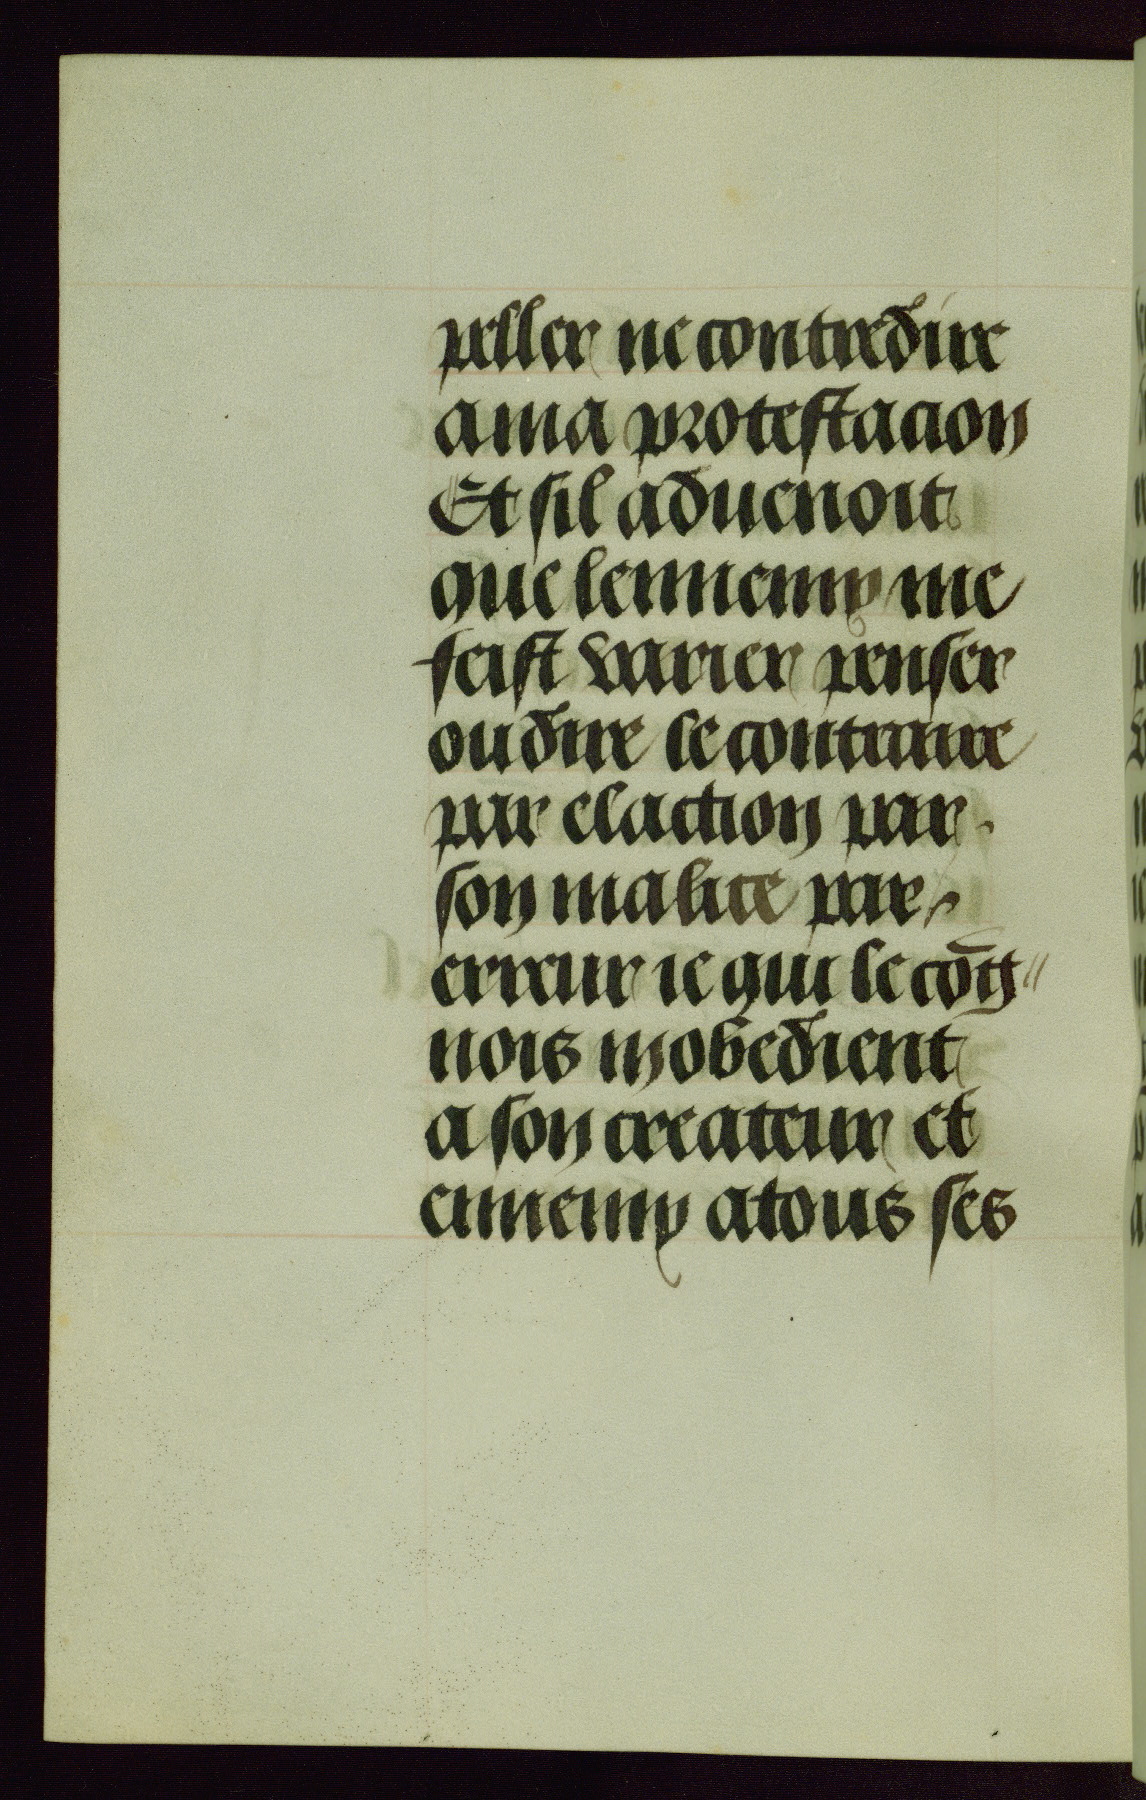 peller ne contredire
a ma protestacion
Et sil aduenoit
que lennemy me
feist varier penser
ou dire le contraire
par elaction par
son malice par
erreur ie qui le cōg〃
nois inobedient
a son createur et
ennemy a tous ses